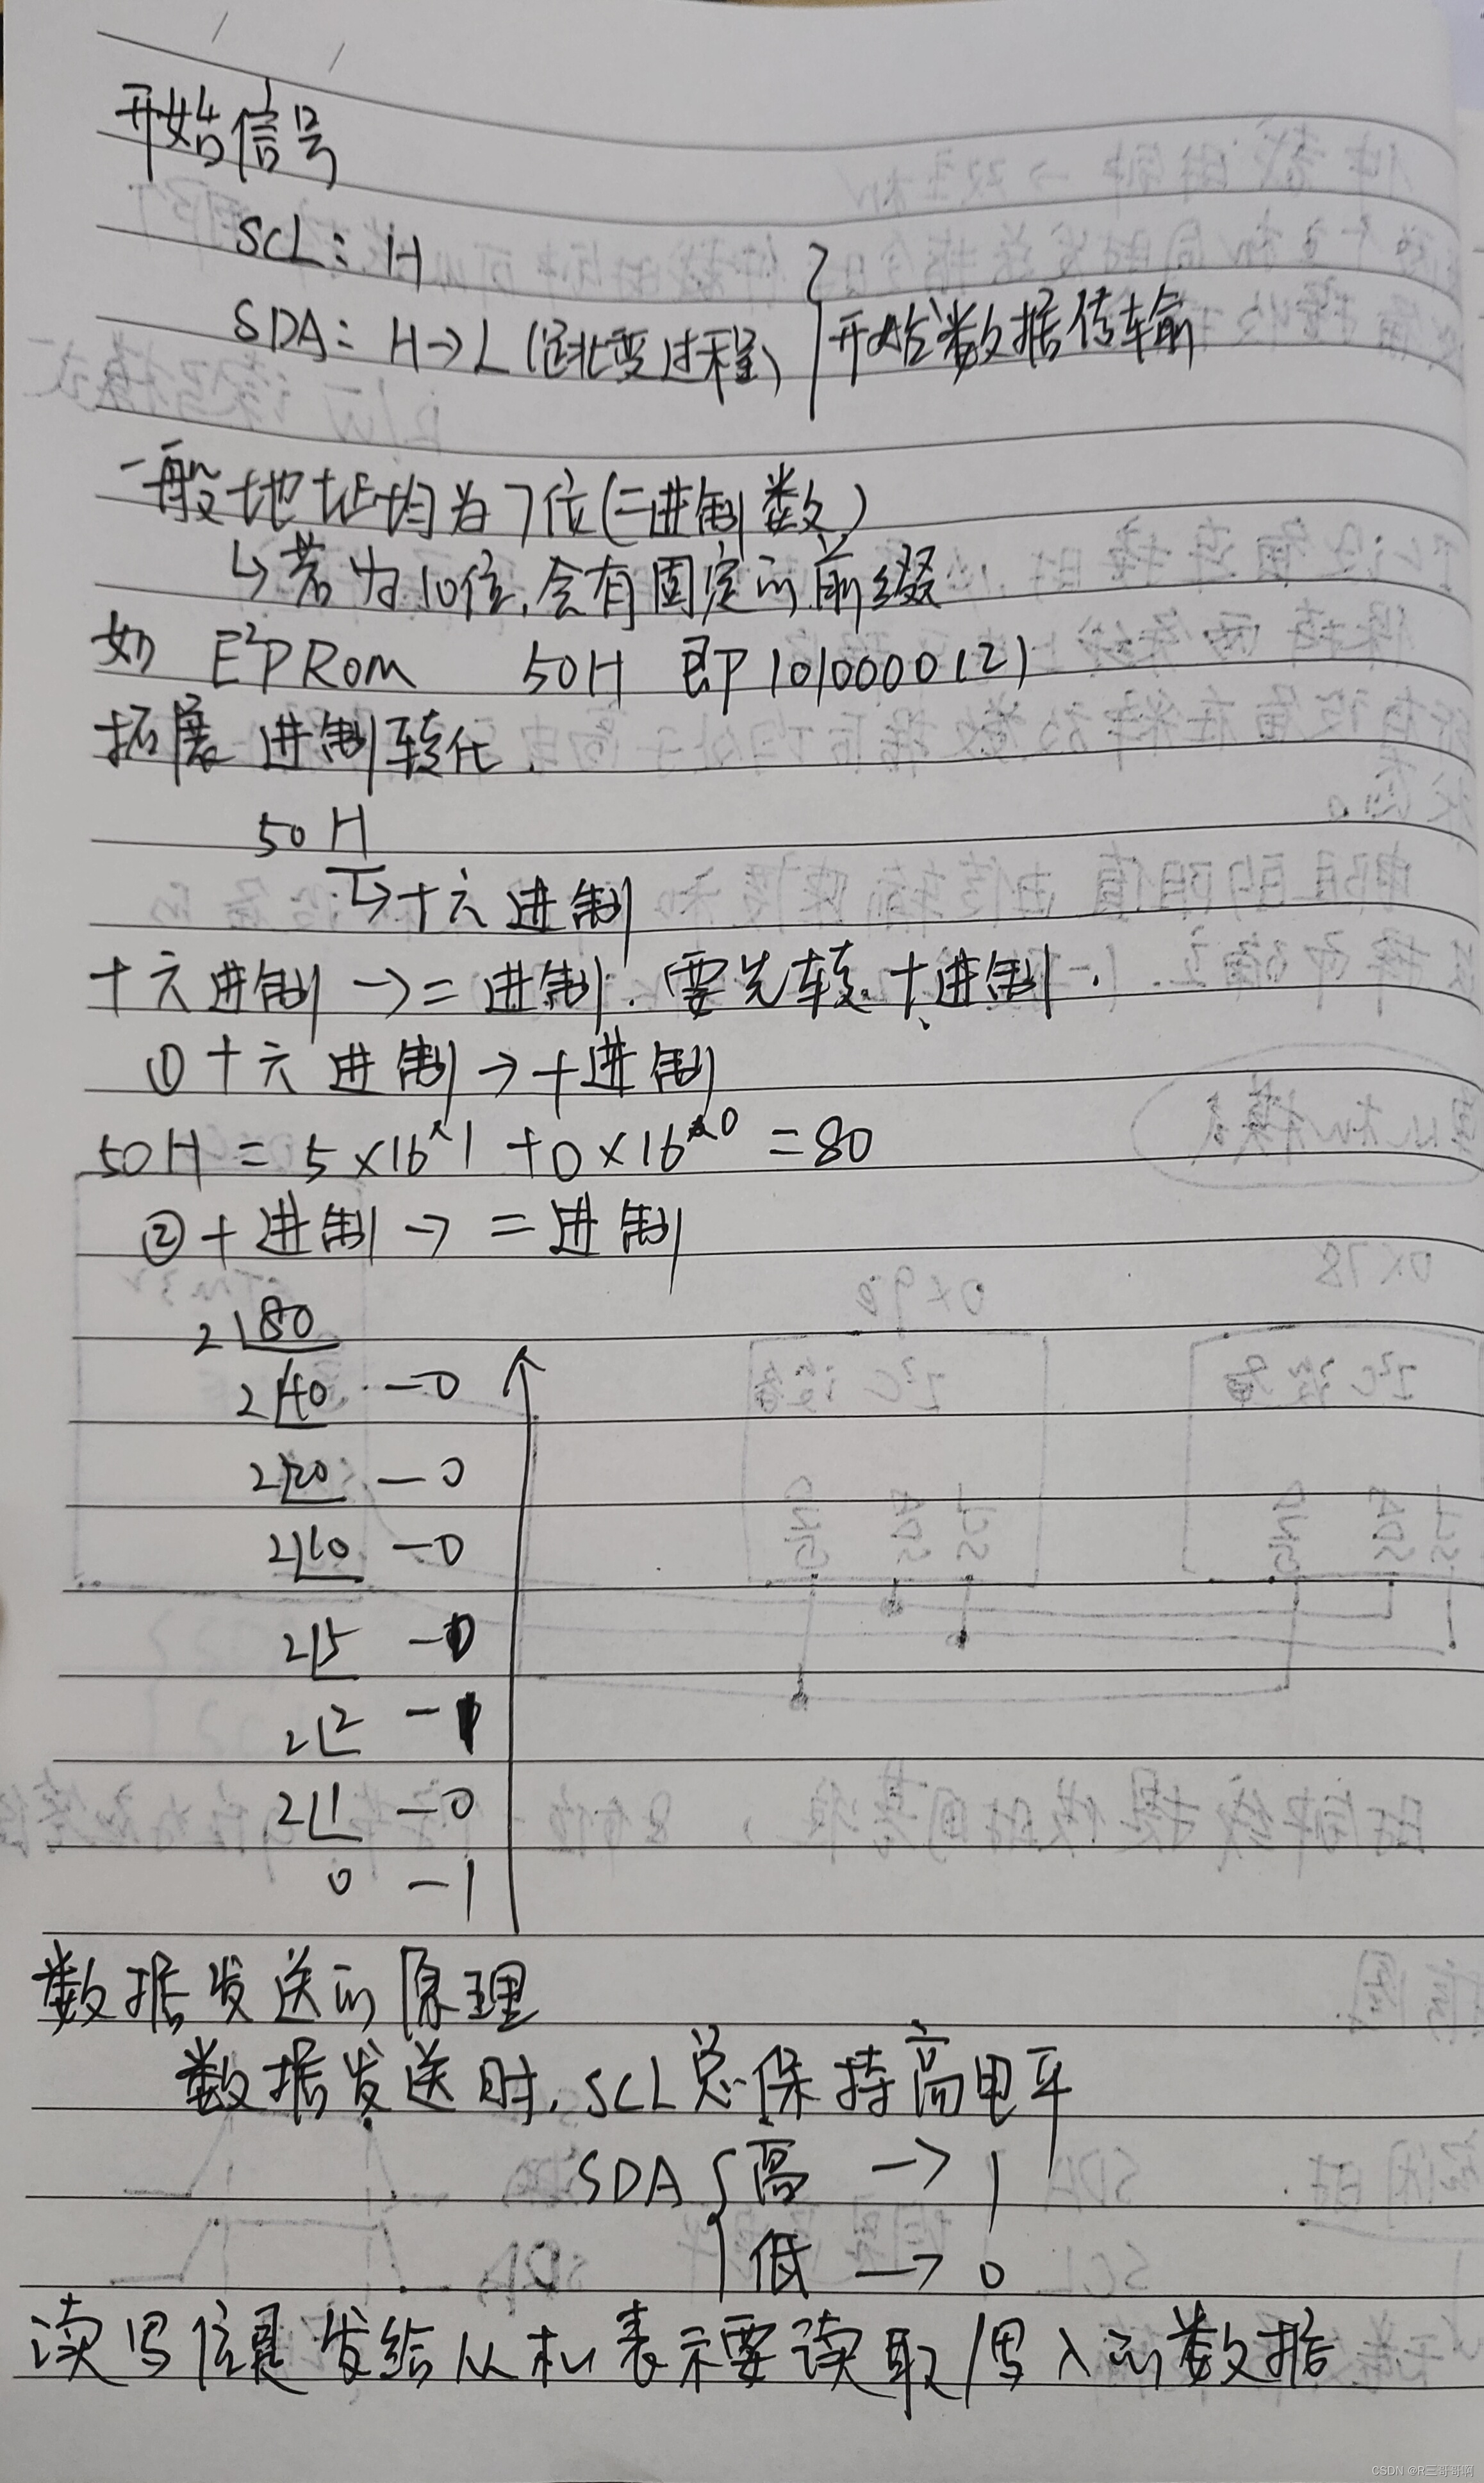 开始信号
SCL: H
SDA: H→L (跳变过程) } 开始数据传输
一般地址均为7位(二进制数)
↳若为10位,会有固定的前缀
如 E²PROM 50H 即1010000(2)
拓展 进制转化.
50H
↳十六进制
十六进制→二进制.需先转十进制.
①十六进制→十进制
50H = 5×16^1 + 0×16^0 = 80
②十进制→二进制
2|80
2|40 —0
2|20 —0
2|10 —0
2|5 —0
2|2 —1
2|1 —0
0 —1
数据发送的原理
数据发送时,SCL总保持高电平
SDA { 高 → 1
低 → 0
读写信息发给从机表示要读取/写入的数据
CSDN @R三哥哥啊